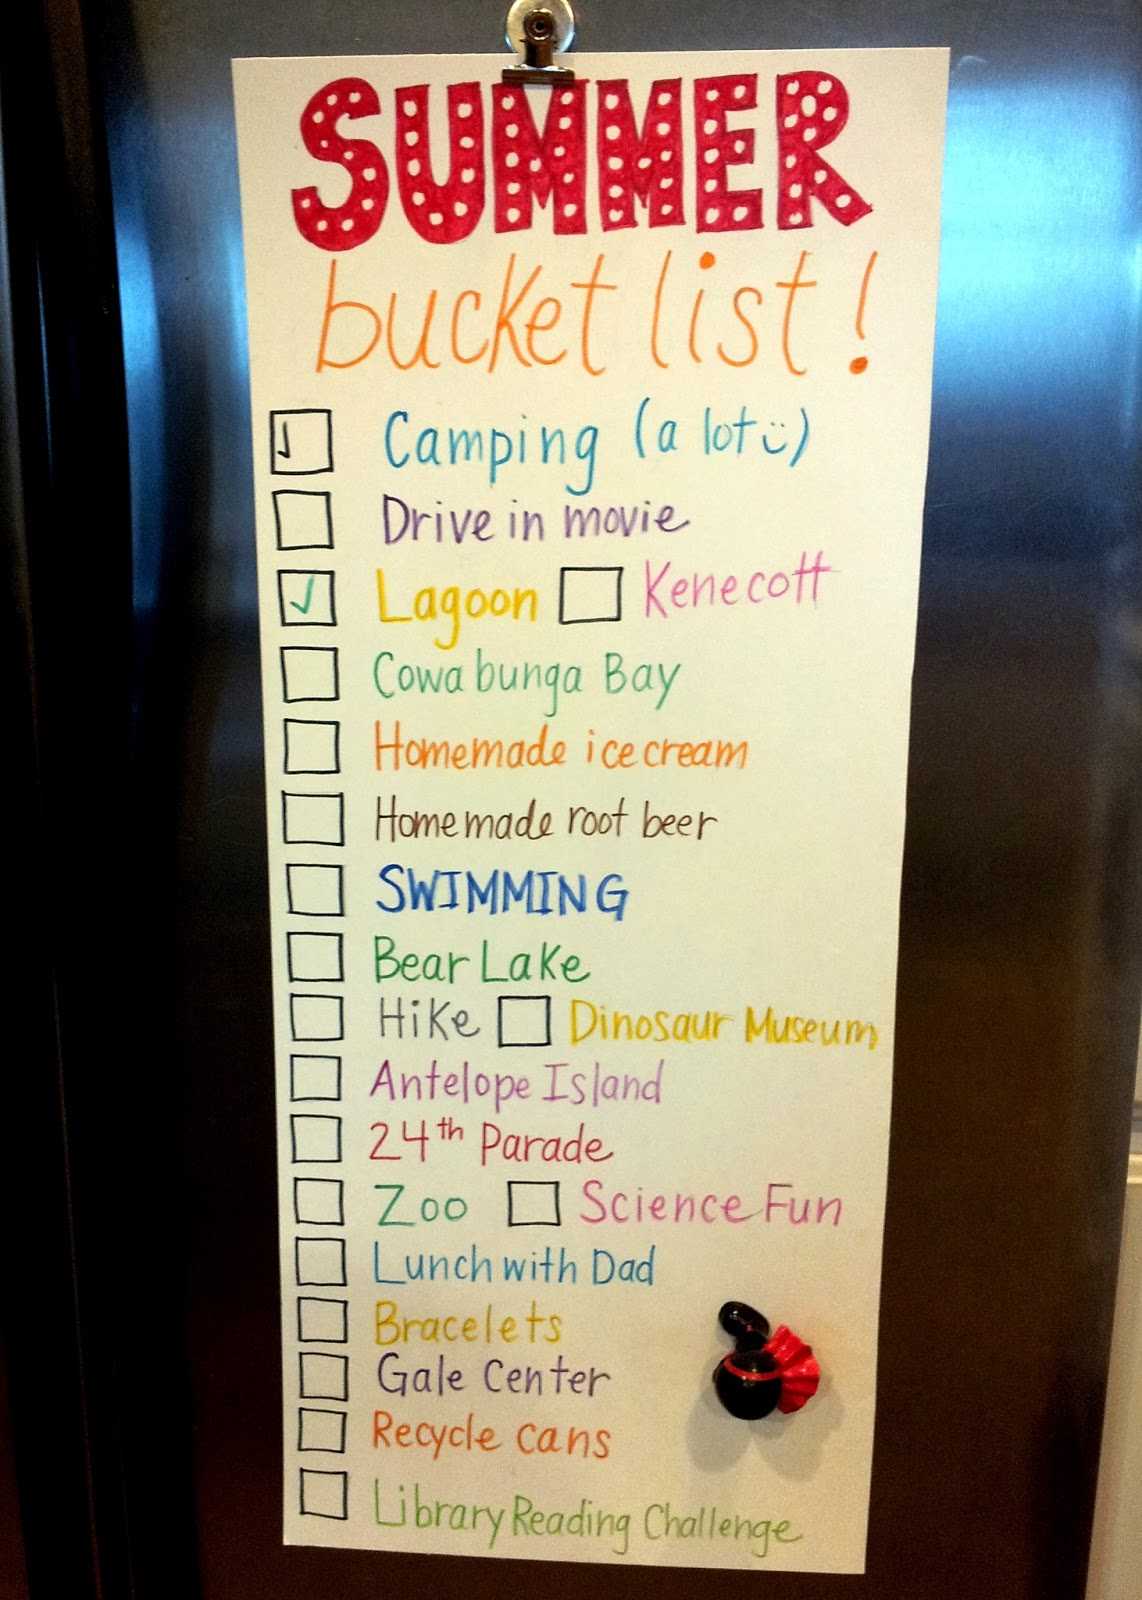 SUMMER
bucket list!
Camping (a lot ü)
Drive in movie
Lagoon Kenecott
Cowabunga Bay
Homemade ice cream
Homemade root beer
SWIMMING
Bear Lake
Hike Dinosaur Museum
Antelope Island
24th Parade
Zoo Science Fun
Lunch with Dad
Bracelets
Gale Center
Recycle cans
Library Reading Challenge